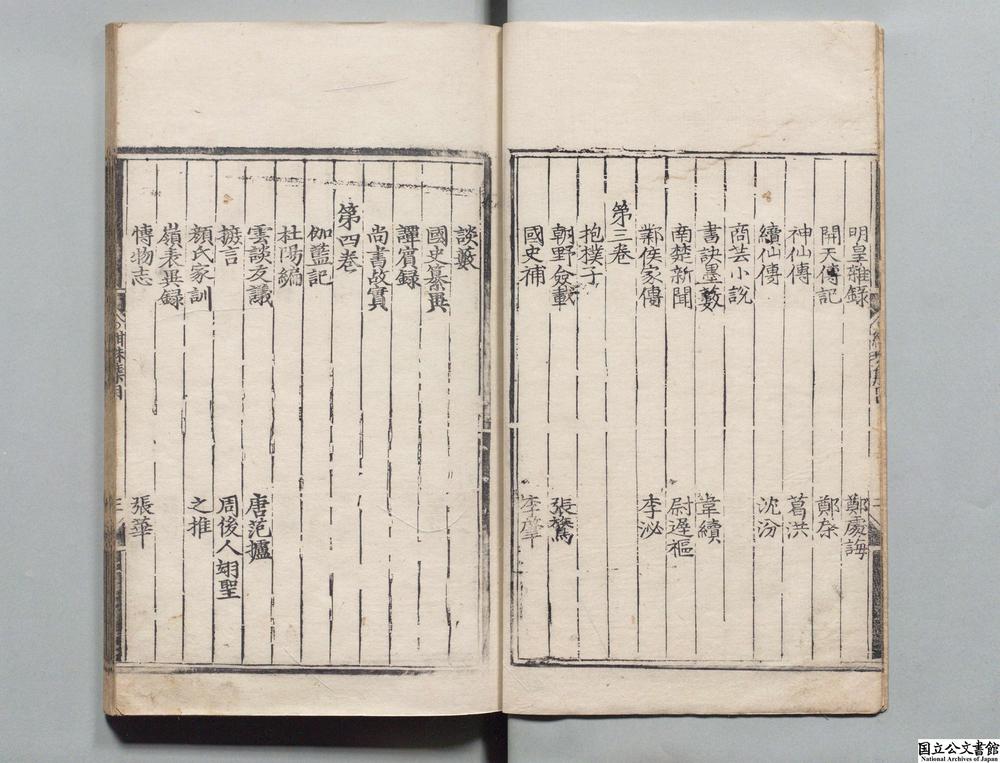 明皇雜錄 鄭處誨
開天傳記 鄭棨
神仙傳 葛洪
續仙傳 沈汾
商芸小說
書訣墨藪 韋續
南楚新聞 尉遲樞
鄴侯家傳 李泌
第三卷
抱樸子
朝野僉載 張鷟
國史補 李肇
談藪
國史纂異
譚賓錄
尚書故實
第四卷
伽藍記
杜陽編
雲谿友議 唐范攄
摭言 周後人翊聖
顏氏家訓 之推
嶺表異錄
博物志 張華
国立公文書館
National Archives of Japan